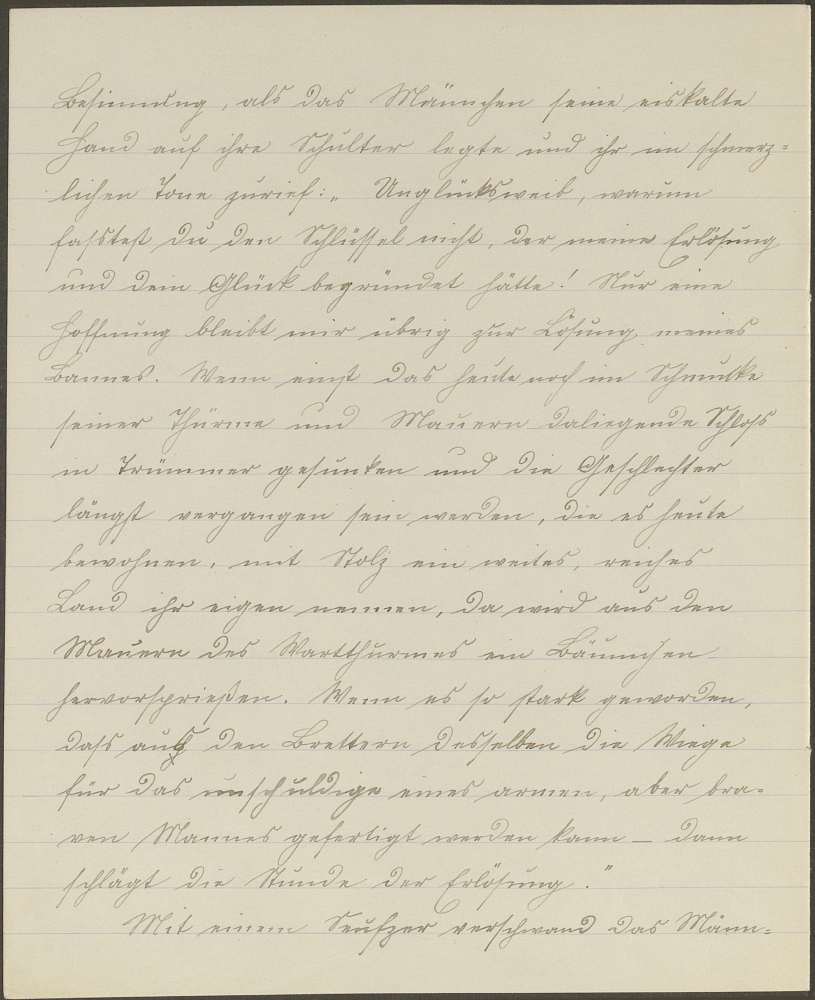 Besinnung, als das Männchen seine eiskalte
Hand auf ihre Schulter legte und ihr im schmerz=
lichen Tone zurief: „Unglücksweib, warum
fasstest du den Schlüssel nicht, der meine Erlösung
und dein Glück begründet hätte! Nur eine
Hoffnung bleibt mir übrig zur Lösung meines
Bannes. Wenn einst das heute noch im Schmucke
seiner Thürme und Mauern daliegende Schloss
in Trümmer gesunken und die Geschlechter
längst vergangen sein werden, die es heute
bewohnen, mit Stolz ein weites, reiches
Land ihr eigen nennen, da wird aus den
Mauern des Wartthurmes ein Bäumchen
hervorsprießen. Wenn es so stark geworden,
dass aus den Brettern desselben die Wiege
für das unschuldige eines armen, aber bra=
ven Mannes gefertigt werden kann — dann
schlägt die Stunde der Erlösung."
Mit einem Seufzer verschwand das Männ=